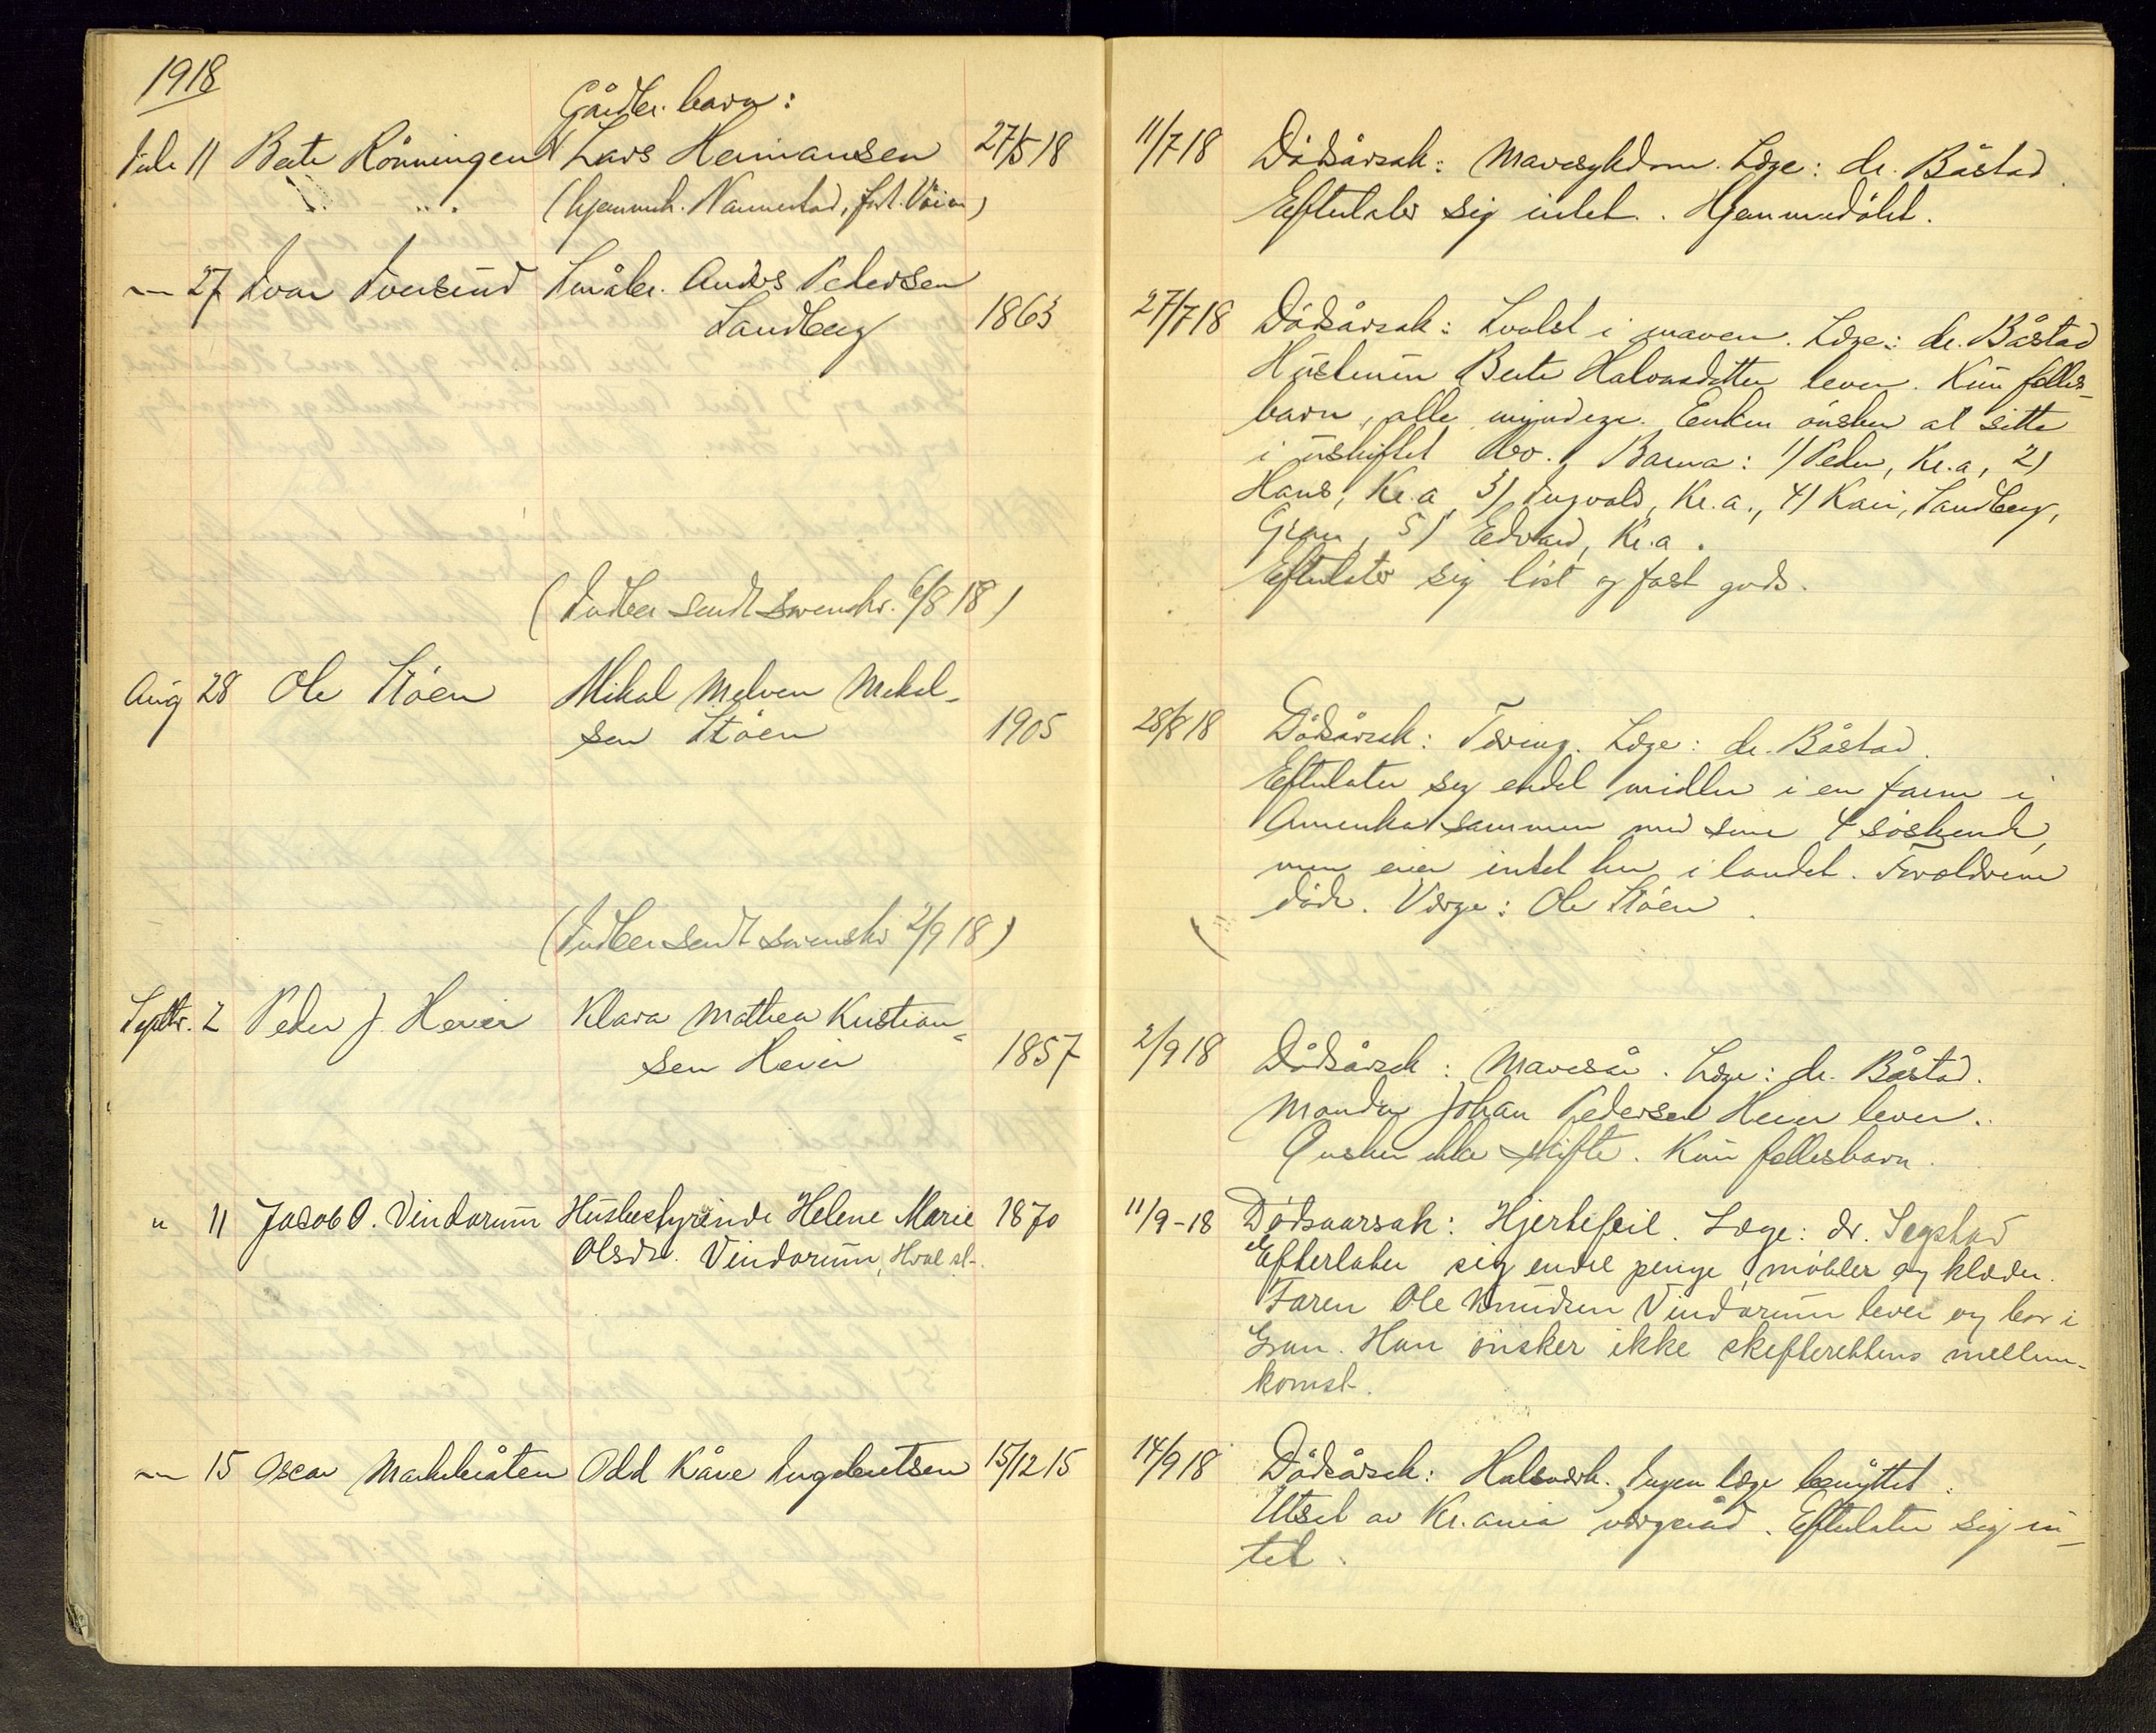 1918
Gårdbr. barn:
Juli 11 Beate Rönningen Lars Hermansen 27/5 18
(hjemmeh. Nannestad, fød. Vöien)
— 27 Ivar Iversrud Småbr. Anders Pedersen
Sandberg 1863
(Indber. sendt sorenskr. 6/8 18)
Aug 28 Ole Stöen Mikal Melven Mikal-
sen Stöen 1905
(Indber. sendt sorenskr 2/9 18)
Septbr. 2 Peder J. Heier Klara Mathea Kristian-
sen Heier 1857
" 11 Jacob O. Vindorum Husbestyrinde Helene Marie 1870
Olsdr. Vindorum, Hval st.
— 15 Oscar Odd Kåre Ingebretsen 15/12 15
11/7 18 Dödsårsak: Mavesykdom. Læge: dr. Båstad.
Efterlater sig intet. Hjemmedöbt.
27/7 18 Dödsårsak: Svulst i maven. Læge: dr. Båstad
Hustruen Beate Halvorsdatter lever. Kun fælles-
barn, alle myndige. Enken önsker at sitte
i uskiftet bo. Barna: 1) Peder, Kr.a, 2)
Hans, Kr.a 3) Ingvald, Kr.a., 4) Kari, Sandberg,
Gran, 5) Edvard, Kr.a.
Efterlater sig löst og fast gods.
28/8 18 Dödsårsak: Tæring. Læge: dr. Båstad.
Efterlater sig endel midler i en farm i
Amerika sammen med sine 4 söskende,
men eier intet her i landet. Forældrene
döde. Værge: Ole Stöen.
2/9 18 Dödsårsak: Mavesår. Læge: dr. Båstad.
Manden Johan Pedersen Heier lever.
Önsker ikke skifte. Kun fællesbarn.
11/9-18 Dödsaarsak: Hjertefeil. Læge: dr. Segstad
Efterlater sig endel penge, möbler og klæder.
Faren Ole Knudsen Vindorum lever og bor i
Gran. Han önsker ikke skifterettens mellem-
komst.
14/9 18 Dödsårsak: Halsverk. Ingen læge benyttet.
Utsat av Kr.ania vergeråd. Efterlater sig in-
tet.